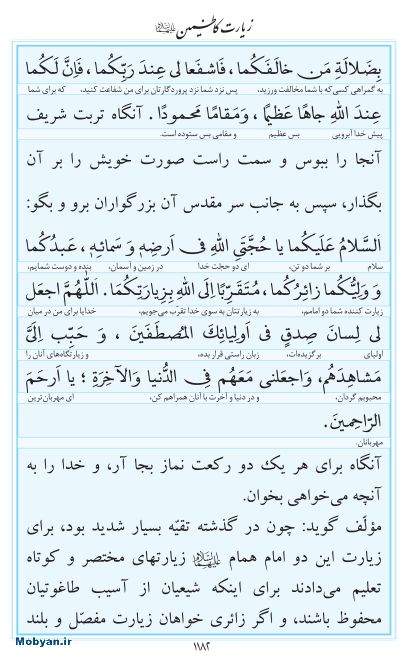 زیارت کاظمین علیهما السلام
بِضَلالَةِ مَن خالَفَكُما، فَاشفَعا لی عِندَ رَبِّكُما، فَاِنَّ لَكُما
به گمراهی کسی که با شما مخالفت ورزید، پس نزد شما نزد پروردگارتان برای من شفاعت کنید، که برای شما
عِندَ اللهِ جاهًا عَظیمًا، وَمَقامًا مَحمودًا. آنگاه تربت شریف
پیش خدا آبرویی بس عظیم و مقامی بس ستوده است.
آنجا را ببوس و سمت راست صورت خویش را بر آن
بگذار، سپس به جانب سر مقدس آن بزرگواران برو و بگو:
اَلسَّلامُ عَلَیكُما یا حُجَّتَیِ اللهِ فی اَرضِهِ وَ سَمائِهِ، عَبدُكُما
سلام بر شما دو تن، ای دو حجّت خدا در زمین و آسمان، بنده و دوست شمایم،
وَ وَلِیُّكُما زائِرُكُما، مُتَقَرِّبًا اِلَی اللهِ بِزِیارَتِكُما. اَللّهُمَّ اجعَل
زیارت کننده شما دو امامم، به زیارتتان به سوی خدا تقرّب می‌جویم، خدایا برای من در میان
لی لِسانَ صِدقٍ فی اَولِیائِكَ المُصطَفَینَ، وَ حَبِّب اِلَیَّ
اولیای برگزیده‌ات، زبان راستی قرار بده، و زیارتگاه‌های آنان را
مَشاهِدَهُم، وَاجعَلنی مَعَهُم فِی الدُّنیا وَالآخِرَةِ؛ یا اَرحَمَ
محبوبم گردان، و در دنیا و آخرت با آنان همراهم کن، ای مهربان‌ترین
الرّاحِمینَ.
مهربانان.
آنگاه برای هر یک دو رکعت نماز بجا آر، و خدا را به
آنچه می‌خواهی بخوان.
مؤلّف گوید: چون در گذشته تقیّه بسیار شدید بود، برای
زیارت این دو امام همام علیهما السلام زیارتهای مختصر و کوتاه
تعلیم می‌دادند برای اینکه شیعیان از آسیب طاغوتیان
محفوظ باشند، و اگر زائری خواهان زیارت مفصّل و بلند
۱۱۸۲
Mobyan.ir